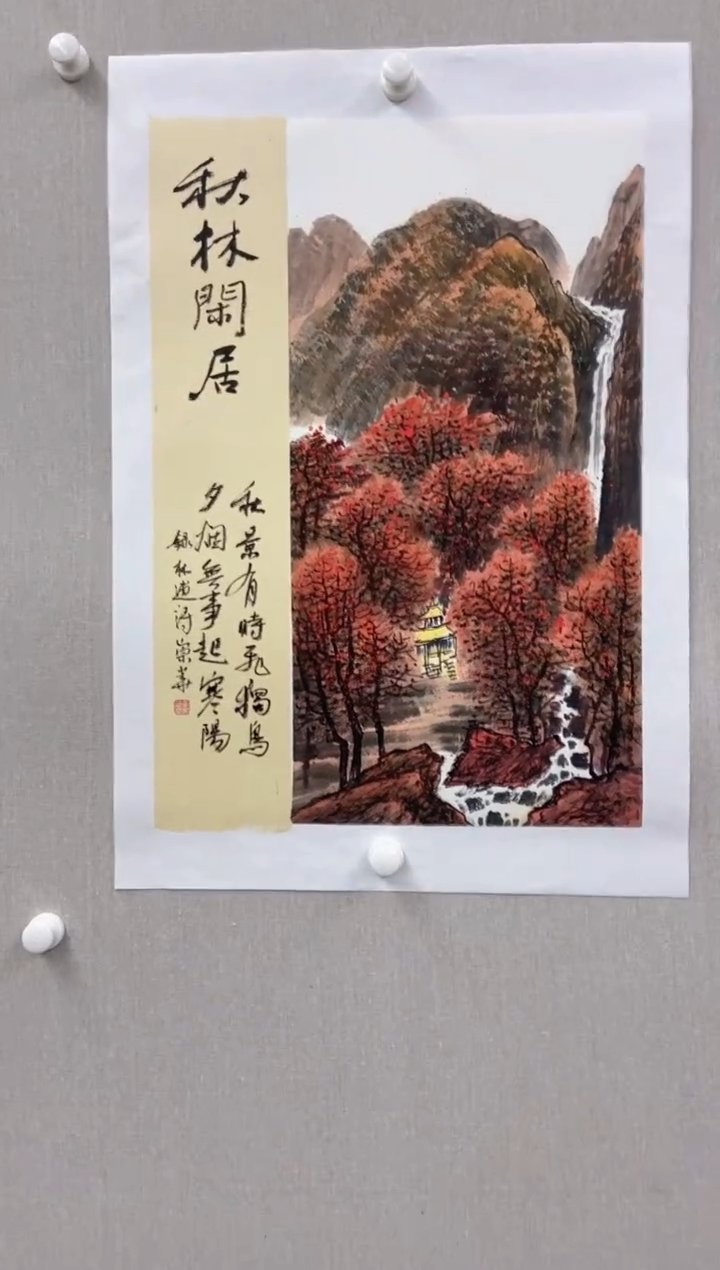 秋林閑居
秋景有時飛獨鳥
夕烟無事起寒陽
錄林逋詩崇華